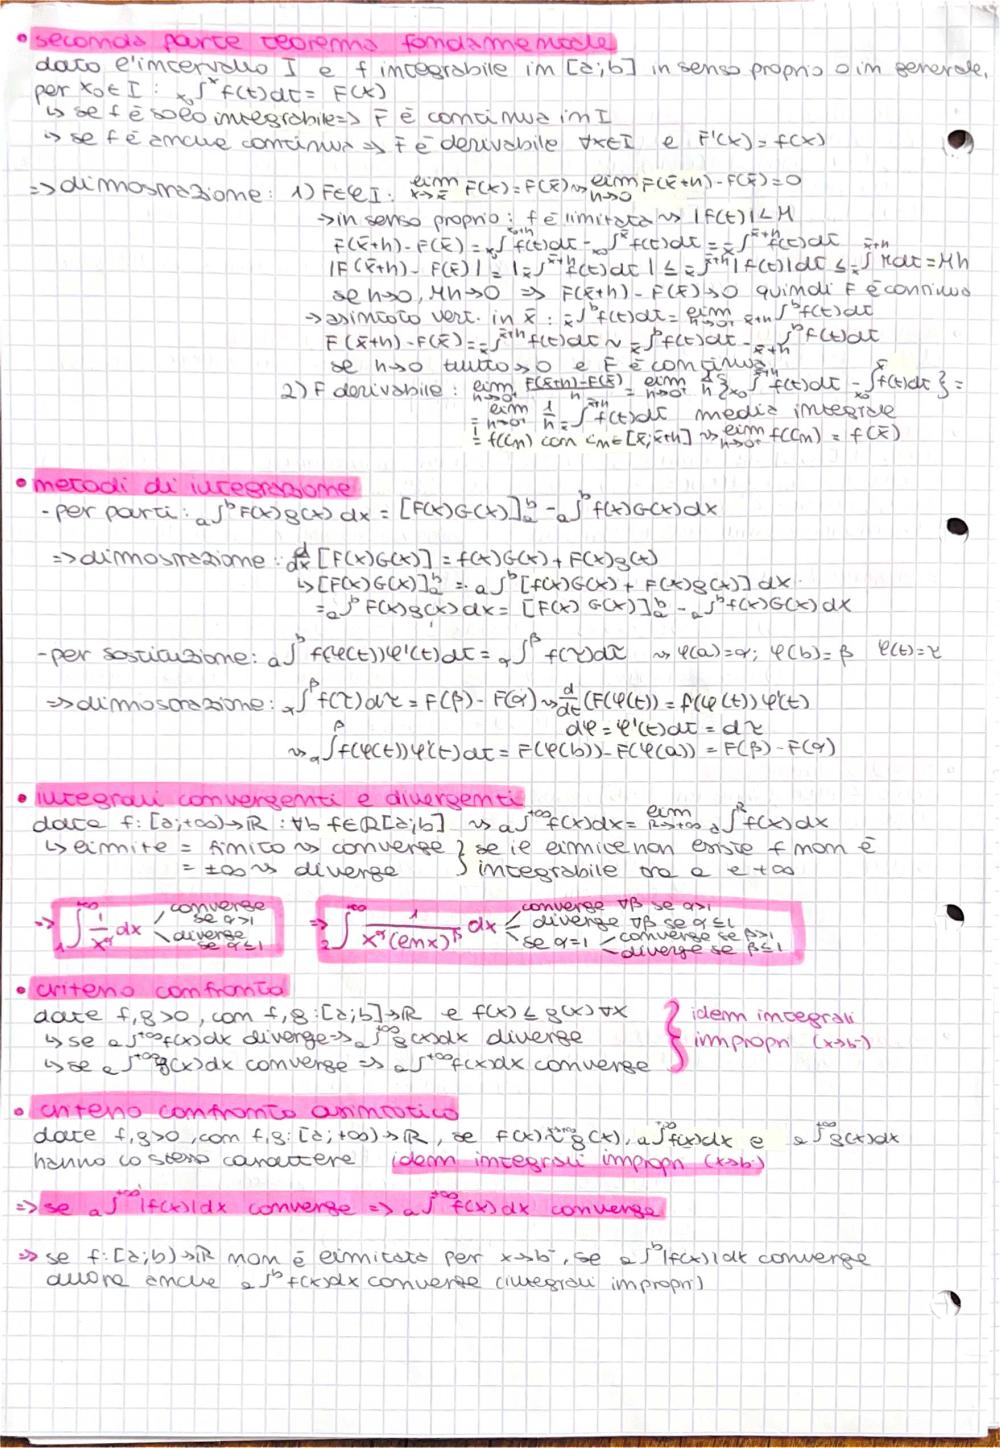 • seconda parte teorema fondamentale
dato l'intervallo I e f integrabile in [a;b] in senso proprio o in generale,
per x₀∈I : x₀∫ˣ f(t)dt = F(x)
↳ se f è solo integrabile => F è continua in I
↳ se f è anche continua => F è derivabile ∀x∈I e F'(x) = f(x)
=> dimostrazione: 1) F∈C I: lim x→x̄ F(x) = F(x̄) ⇝ lim h→0 F(x̄+h) - F(x̄) = 0
→ in senso proprio: f è limitata ⇝ |f(t)| < M
F(x̄+h) - F(x̄) = x₀∫ˣ̄⁺ʰ f(t)dt - x₀∫ˣ̄ f(t)dt = x̄∫ˣ̄⁺ʰ f(t)dt
|F(x̄+h) - F(x̄)| = |x̄∫ˣ̄⁺ʰ f(t)dt| ≤ x̄∫ˣ̄⁺ʰ |f(t)|dt ≤ x̄∫ˣ̄⁺ʰ M dt = Mh
se h→0, Mh→0 => F(x̄+h) - F(x̄) → 0 quindi F è continua
→ asintoto vert. in x̄ : x̄∫ᵇ f(t)dt = lim h→0⁺ x̄+h∫ᵇ f(t)dt
F(x̄+h) - F(x̄) = x̄∫ˣ̄⁺ʰ f(t)dt ~ x̄∫ᵇ f(t)dt - x̄+h∫ᵇ f(t)dt
se h→0 tutto → 0 e F è continua
2) F derivabile : lim h→0⁺ F(x̄+h) - F(x̄) / h = lim h→0⁺ 1/h { x₀∫ˣ̄⁺ʰ f(t)dt - x₀∫ˣ̄ f(t)dt } =
= lim h→0⁺ 1/h x̄∫ˣ̄⁺ʰ f(t)dt media integrale
= f(cₙ) con cₙ∈[x̄;x̄+h] ⇝ lim h→0⁺ f(cₙ) = f(x̄)
• metodi di integrazione
- per parti: a∫ᵇ F(x)g(x) dx = [F(x)G(x)]ᵇₐ - a∫ᵇ f(x)G(x)dx
=> dimostrazione: d/dx [F(x)G(x)] = f(x)G(x) + F(x)g(x)
↳ [F(x)G(x)]ᵇₐ = a∫ᵇ [f(x)G(x) + F(x)g(x)] dx
= a∫ᵇ F(x)g(x) dx = [F(x) G(x)]ᵇₐ - a∫ᵇ f(x)G(x) dx
- per sostituzione: a∫ᵇ f(φ(t))φ'(t)dt = α∫ᵝ f(τ)dτ ⇝ φ(a)=α; φ(b)=β φ(t)=τ
=> dimostrazione: α∫ᵝ f(τ)dτ = F(β) - F(α) ⇝ d/dt (F(φ(t)) = f(φ(t))φ'(t)
dφ = φ'(t)dt = dτ
⇝ α∫ᵝ f(φ(t))φ'(t)dt = F(φ(b)) - F(φ(a)) = F(β) - F(α)
• integrali convergenti e divergenti
date f: [a;+∞) → ℝ : ∀b f∈R[a;b] ⇝ a∫⁺∞ f(x)dx = lim R→+∞ a∫ᴿ f(x)dx
↳ limite = finito ⇝ converge } se il limite non esiste f non è
= ±∞ ⇝ diverge } integrabile tra a e +∞
=> 1∫⁺∞ 1/xᵅ dx converge se α>1 diverge se α≤1 => 2∫⁺∞ 1/xᵅ(lnx)ᵝ dx converge ∀β se α>1 diverge ∀β se α≤1 se α=1 converge se β>1 diverge se β≤1
• criterio confronto
date f,g>0, con f,g:[a;b]→ℝ e f(x) ≤ g(x) ∀x } idem integrali
↳ se a∫⁺∞ f(x)dx diverge => a∫⁺∞ g(x)dx diverge } impropri (x→b⁻)
↳ se a∫⁺∞ g(x)dx converge => a∫⁺∞ f(x)dx converge
• criterio confronto asintotico
date f,g>0, con f,g: [a;+∞) → ℝ, se f(x) ~ˣ→⁺∞ g(x), a∫⁺∞ f(x)dx e a∫⁺∞ g(x)dx
hanno lo stesso carattere idem integrali impropri (x→b⁻)
=> se a∫⁺∞ |f(x)|dx converge => a∫⁺∞ f(x)dx converge
=> se f:[a;b)→ℝ non è limitata per x→b⁻, se a∫ᵇ |f(x)|dx converge
allora anche a∫ᵇ f(x)dx converge (integrali impropri)